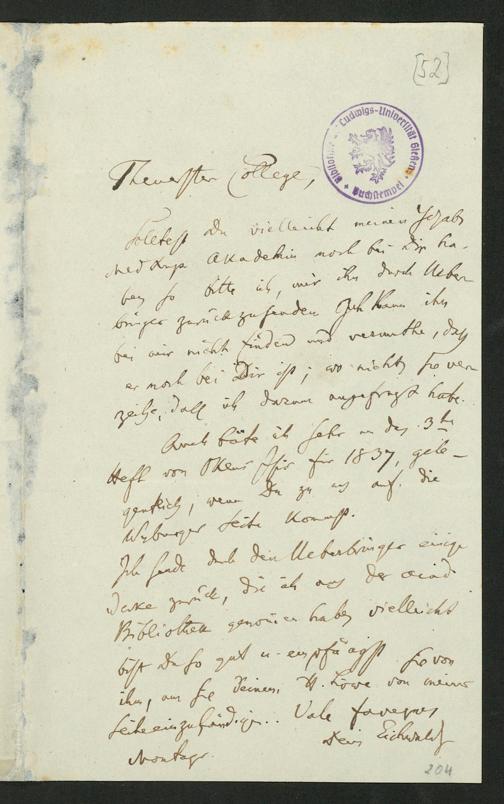 [52]
Bibliothek Ludwigs-Universität Gießen
Buchstempel
Theuerster College,
Solltest Du vielleicht meinen
Akademie noch bei Dir ha-
ben so bitte ich, mir ihn durch Ueber-
bringer zurückzusenden. Ich kann ihn
bei mir nicht finden und vermuthe, daß
er noch bei Dir ist; wo nicht, so ver-
zeihe, daß ich darum angefragt habe.
Auch bäte ich sehr um das 3te
Heft von Okens Isis für 1837, gele-
gentlich, wenn Du zu uns auf die
Wyburger Seite kommst.
Ich sende durch den Ueberbringer einige
Werke zurück, die ich aus der
Bibliothek genommen habe, vielleicht
bist Du so gut u. empfängst sie von
ihm, um sie Deinem H. Löwe von meiner
Seite einzuhändigen. Vale faveque
Dein Eichwald
Montags.
204